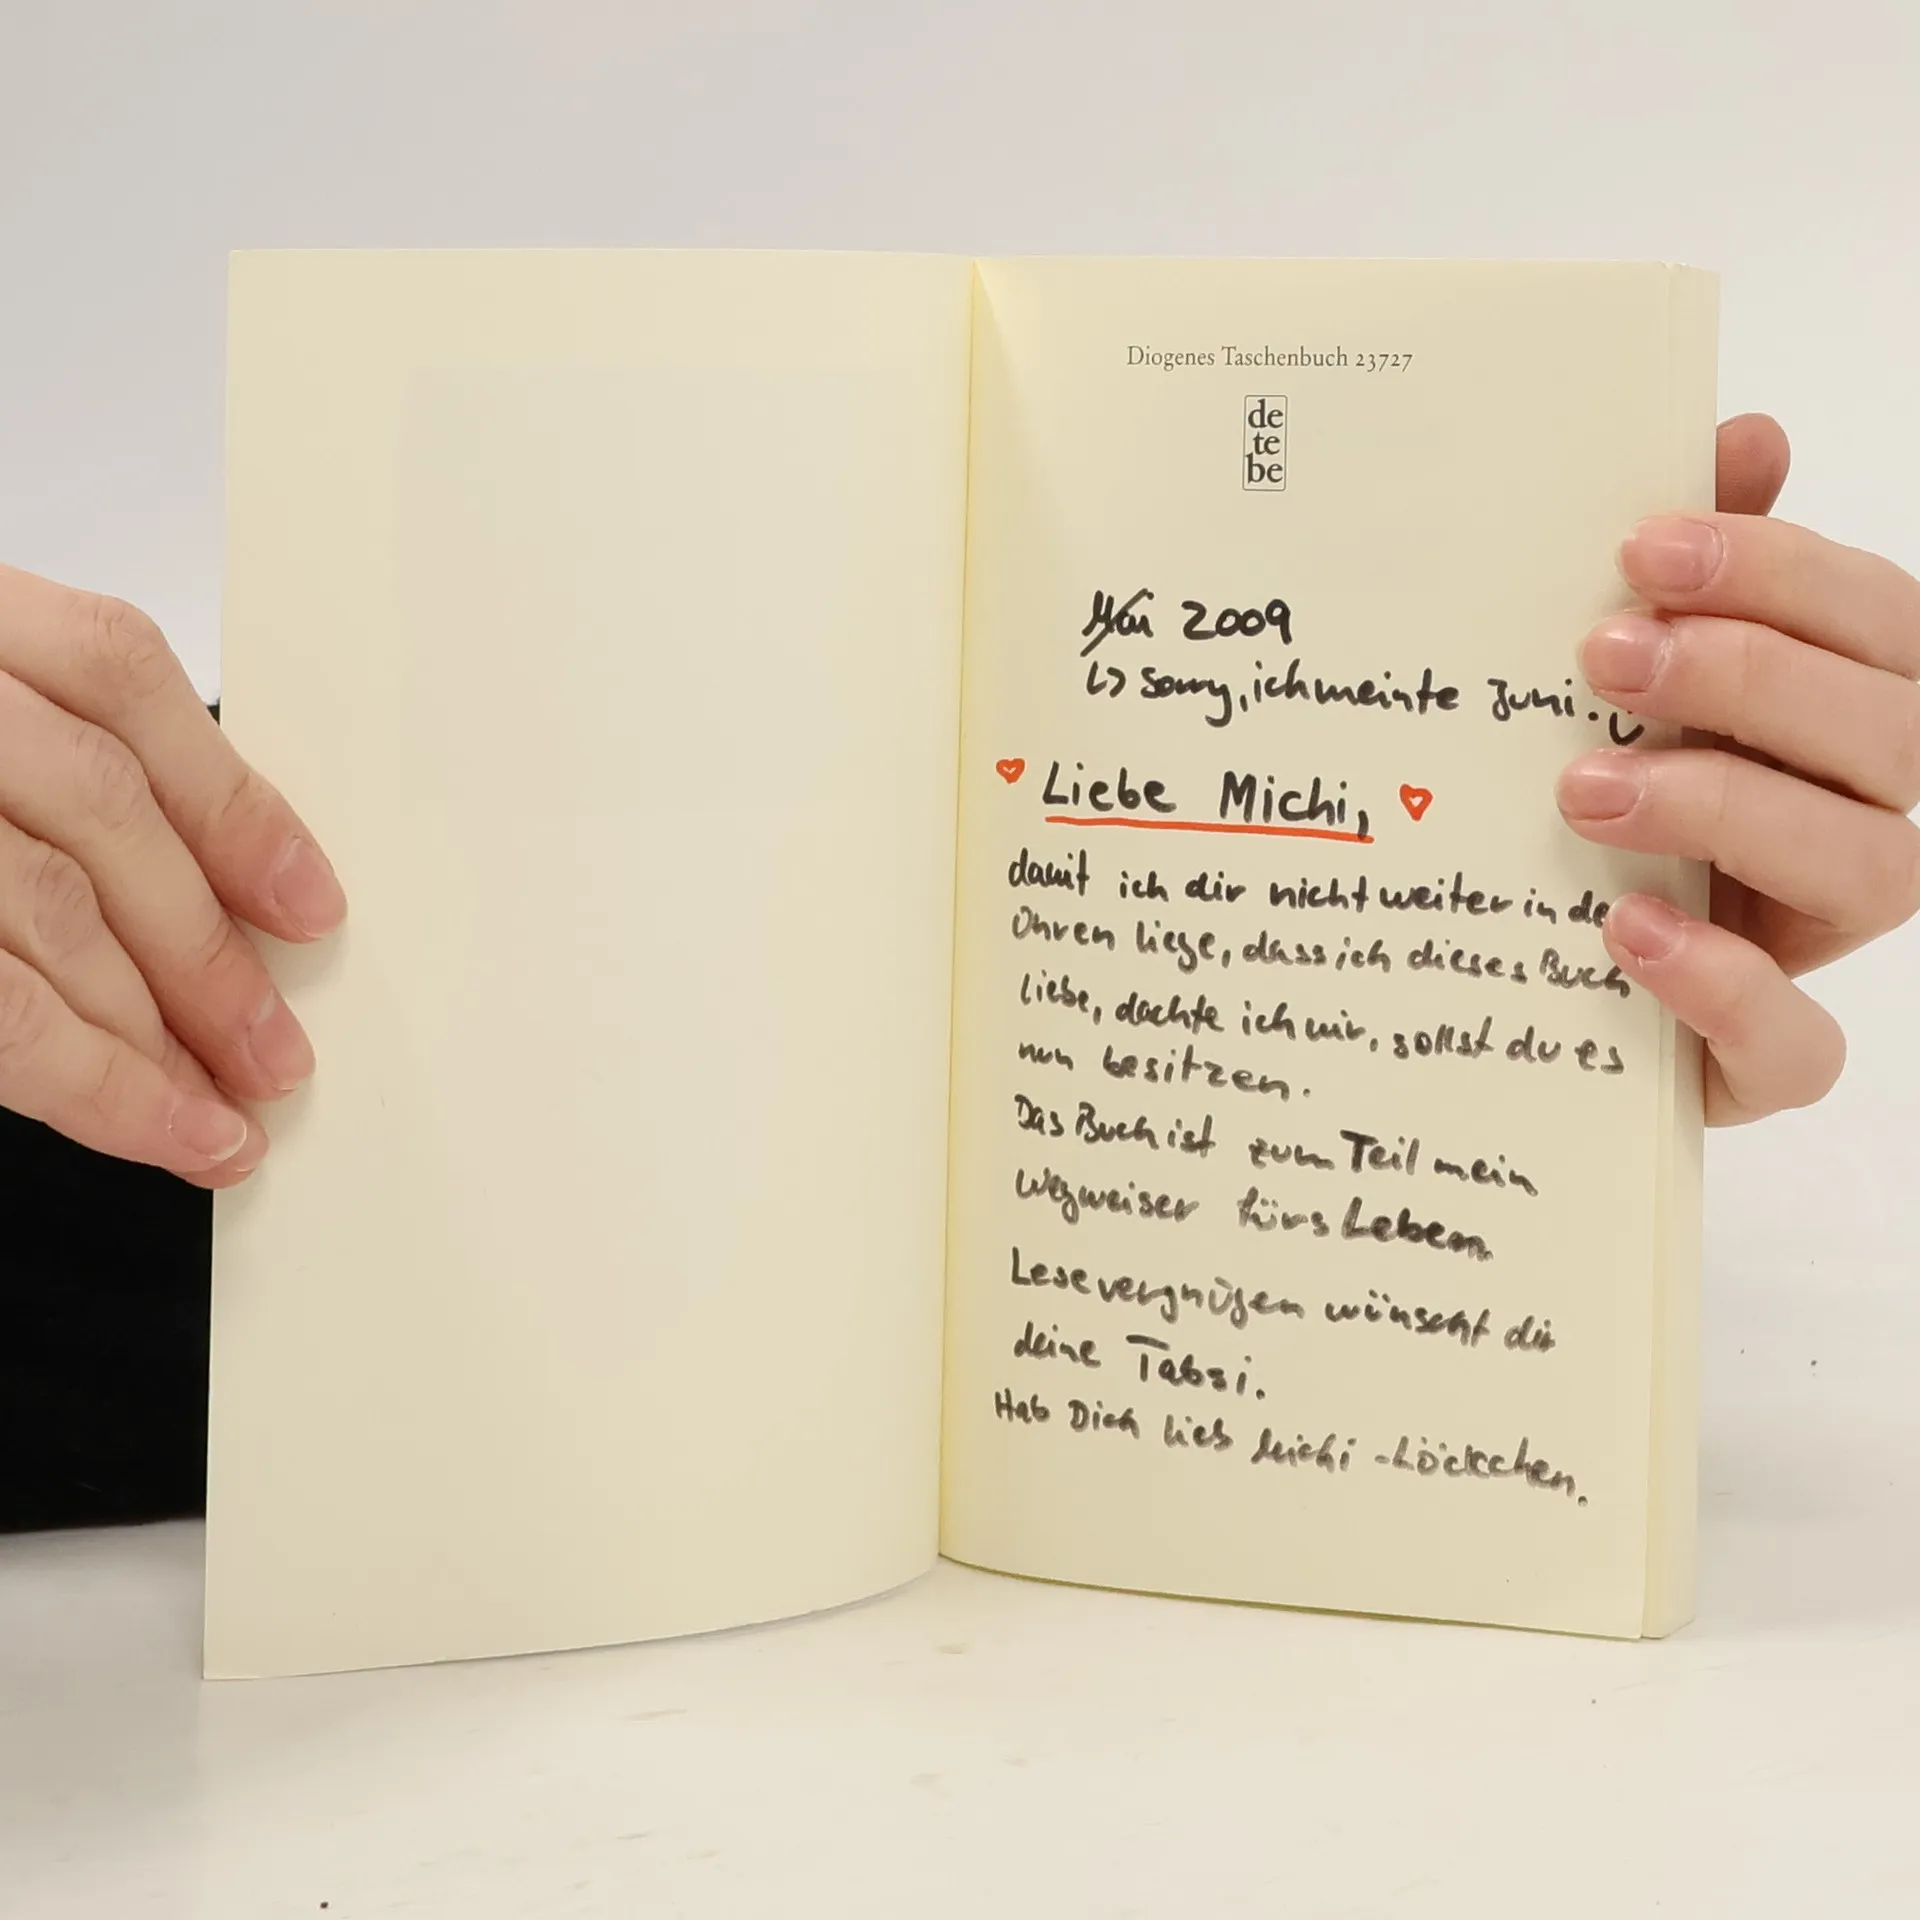 Diogenes Taschenbuch 23727
de
te
be
Mai 2009
↳ sorry, ich meinte Juni.
Liebe Michi,
damit ich dir nicht weiter in de
Ohren liege, dass ich dieses Buch
liebe, dachte ich mir, sollst du es
nun besitzen.
Das Buch ist zum Teil mein
Wegweiser fürs Leben.
Lesevergnügen wünscht dir
deine Tabsi.
Hab Dich lieb Michi-Löckchen.